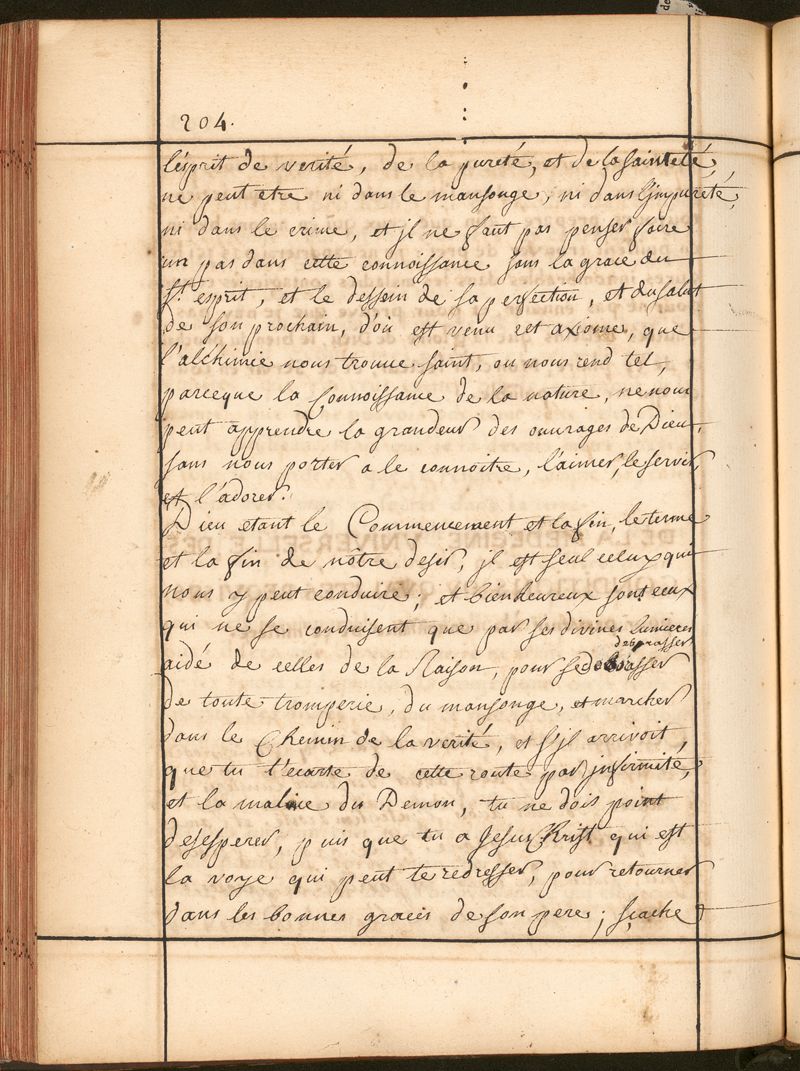 204.
l'esprit de verité, de la pureté, et de la sainteté,
ne peut etre ni dans le mansonge, ni dans l'jmpureté,
ni dans le crime, et jl ne faut pas penser faire
un pas dans cette connoissance sans la grace du
St. esprit, et le dessein de sa perfection, et du salut
de son prochain, d'où est venu cet axiome, que
l'alchimie nous trouve saint, ou nous rend tel,
parceque la Connoissance de la nature, ne nous
peut apprendre la grandeur des ouvrages de Dieu,
sans nous porter a le connoitre, l'aimer, le servir,
et l'adorer.
Dieu etant le Commencement et la fin, le terme
et la fin de nôtre desir, jl est seul celuy qui
nous y peut conduire; et bienheureux sont ceux
qui ne se conduisent que par ses divines lumieres
debarasser
aidé de celles de la Raison, pour se
de toute tromperie, du mansonge, et marcher
dans le Chemin de la verité, et s'jl arrivoit,
que tu t'ecarte de cette route par jnfirmité,
et la malice du Demon, tu ne dois point
desesperer, puis que tu a Jesus Krist qui est
la voye qui peut te redresser, pour retourner
dans les bonnes graces de son pere; sçache